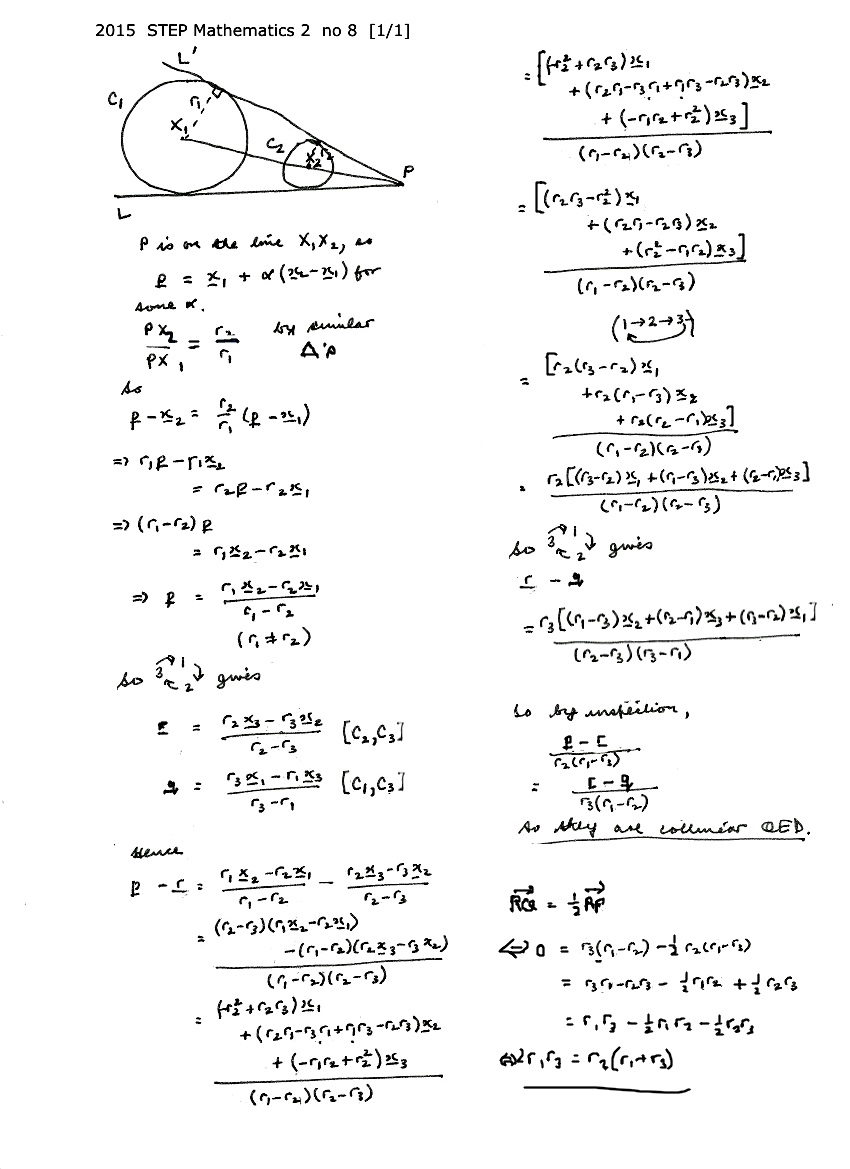 2015 STEP Mathematics 2 no 8 [1/1]
L'
C₁
r₁
X₁
C₂
r₂
X₂
P
L
P is on the line X₁X₂, so
p = x₁ + α(x₂-x₁) for
some α.
PX₂/PX₁ = r₂/r₁ by similar Δ's
So
p - x₂ = r₂/r₁ (p - x₁)
=> r₁p - r₁x₂
= r₂p - r₂x₁
=> (r₁-r₂) p
= r₁x₂ - r₂x₁
=> p = (r₁x₂ - r₂x₁)/(r₁ - r₂)
(r₁ ≠ r₂)
So 3 1 2 gives
r = (r₂x₃ - r₃x₂)/(r₂-r₃) [C₂,C₃]
q = (r₃x₁ - r₁x₃)/(r₃-r₁) [C₁,C₃]
Hence
p - r = (r₁x₂ - r₂x₁)/(r₁-r₂) - (r₂x₃-r₃x₂)/(r₂-r₃)
= (r₂-r₃)(r₁x₂-r₂x₁)
-(r₁-r₂)(r₂x₃-r₃x₂)
(r₁-r₂)(r₂-r₃)
= [(-r₂²+r₂r₃)x₁
+(r₂r₁-r₃r₁+r₁r₃-r₂r₃)x₂
+(-r₁r₂+r₂²)x₃
(r₁-r₂)(r₂-r₃)
= [(-r₂²+r₂r₃)x₁
+(r₂r₁-r₃r₁+r₁r₃-r₂r₃)x₂
+(-r₁r₂+r₂²)x₃]
(r₁-r₂)(r₂-r₃)
= [(r₂r₃-r₂²)x₁
+(r₂r₁-r₂r₃)x₂
+(r₂²-r₁r₂)x₃]
(r₁-r₂)(r₂-r₃)
(1→2→3)
= [r₂(r₃-r₂)x₁
+r₂(r₁-r₃)x₂
+r₂(r₂-r₁)x₃]
(r₁-r₂)(r₂-r₃)
= r₂[(r₃-r₂)x₁+(r₁-r₃)x₂+(r₂-r₁)x₃]
(r₁-r₂)(r₂-r₃)
So 3 1 2 gives
r - q
= r₃[(r₁-r₃)x₂+(r₂-r₁)x₃+(r₃-r₂)x₁]
(r₂-r₃)(r₃-r₁)
So by inspection,
p - r
r₂(r₁-r₃)
= r - q
r₃(r₁-r₂)
So they are collinear QED.
RQ = ½RP
<=> 0 = r₃(r₁-r₂) - ½r₂(r₁-r₃)
= r₃r₁-r₂r₃ - ½r₁r₂ + ½r₂r₃
= r₁r₃ - ½r₁r₂ - ½r₂r₃
<=> 2r₁r₃ = r₂(r₁+r₃)